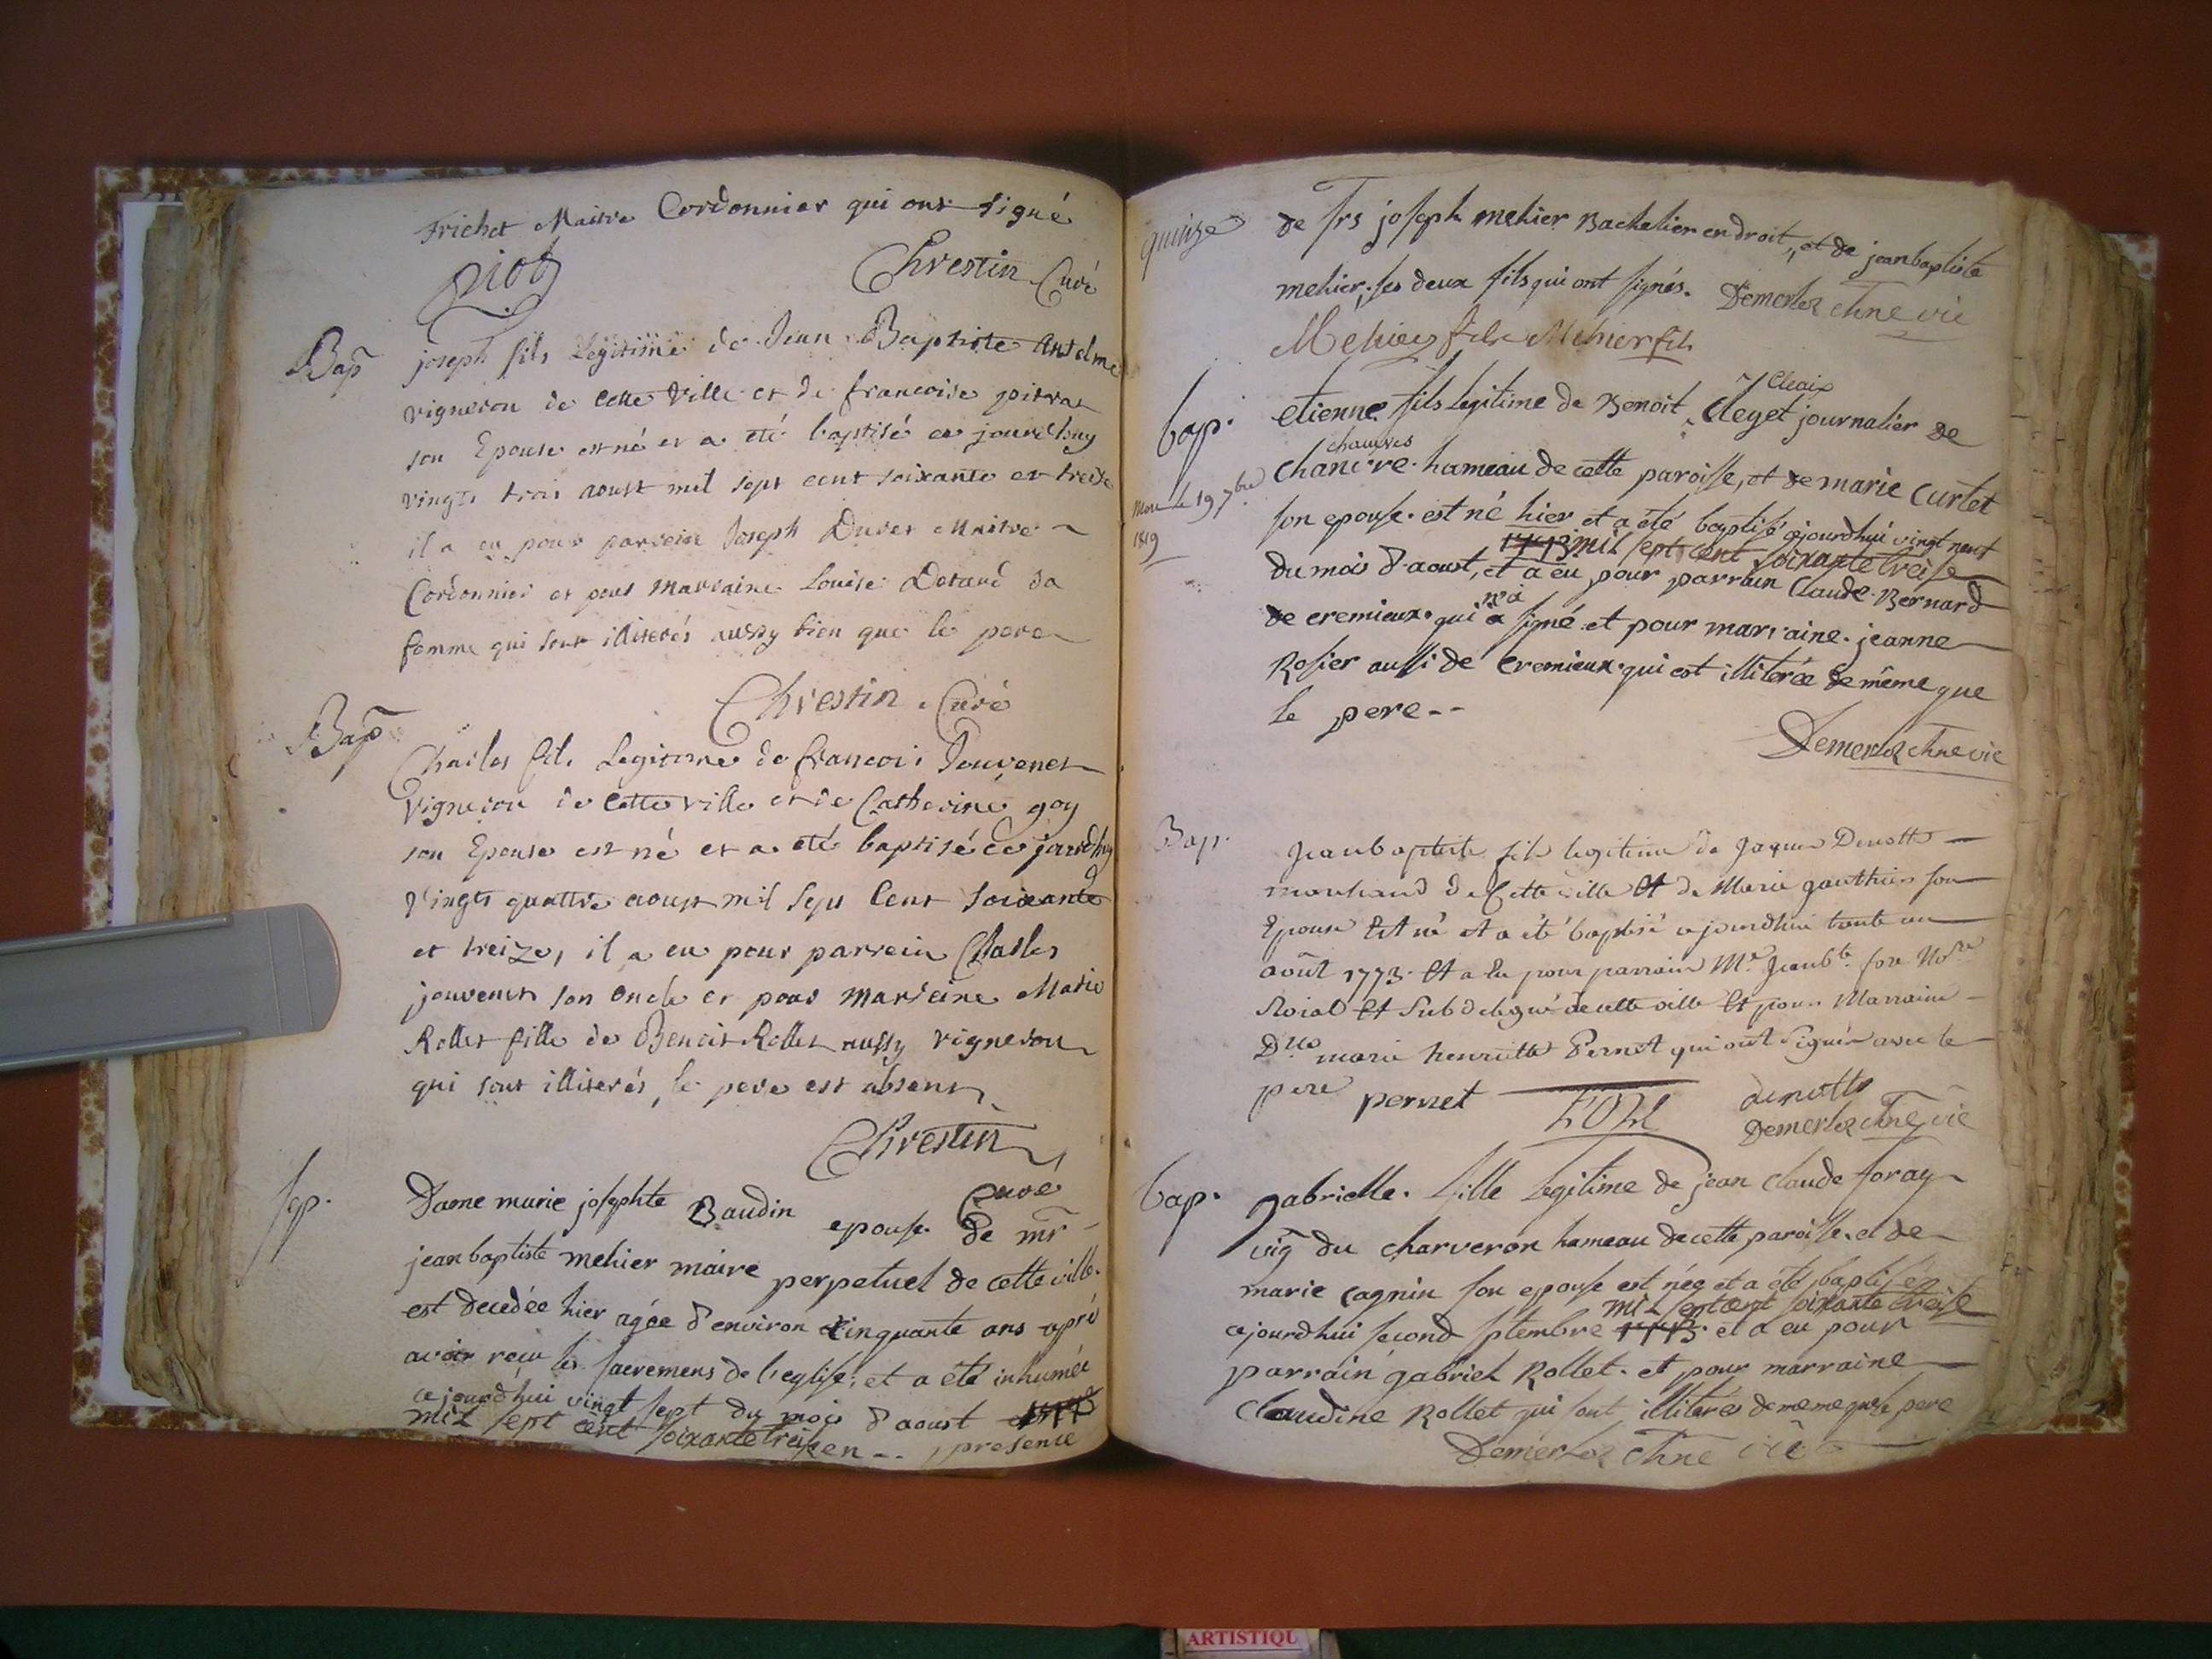 Frichet Maitre Cordonnier qui ont signé
piot Chrestin Curé
Bap
joseph fils Legitime de Jean Baptiste Antelme
vigneron de cette ville et de francoise pitra
son Epouse est né et a eté baptisé ce jourdhuy
vingts trois aoust mil sept cent soixante et treize
il a eu pour parrein Joseph Duret Maitre
Cordonnier et pour Marraine Louise Dotard sa
femme qui sont illiterés aussy bien que le pere
Chrestin Curé
Bap
Charles fils Legitime de francois Jouvenet
vigneron de cette ville et de Catherine goy
son Epouse est né et a eté baptisé ce jourdhuy
vingts quattre aoust mil sept Cent soixante
et treize, il a eu pour parrein Charles
jouvenet son oncle et pour marreine Marie
Rollet fille de Benoit Rollet aussy vigneron
qui sont illiterés, le pere est absent
Chrestin
Curé
sep.
Dame marie josephte Baudin epouse de mr
jean baptiste mehier maire perpetuel de cette ville.
est decedée hier agée d'environ cinquante ans apré
avoir reçu les sacremens de l'eglise, et a été inhumée
cejourdhui vingt sept du mois d'aoust
mil sept cent soixante treise en -- presence
quinze
de srs joseph mehier Bachelier en droit, et de jean baptiste
mehier, ses deux fils qui ont signés. Demerloz chne vic
Mehier fils Mehier fils
bap.
Cleaix
etienne fils legitime de Benoit Cleget journalier de
chauvres
chanivre hameau de cette paroisse, et de marie Curtet
mort le 19 7bre
1819
son epouse est né hier et a été baptisé cejourdhui vingt neuf
1773 mil sept cent soixante treise
du mois d'aoust, et a eu pour parrain Claude Bernard
n'a
de cremieux qui a signé et pour marraine jeanne
Rosier aussi de cremieux qui est illiterée de même que
le pere --
Demerloz chne vic
Bap.
Jean baptiste fils legitime de Jaques Denotte
marchand de Cette ville et de Marie gauthier son
Epouse Est né et a été baptisé cejourdhui trente un
août 1773. Et a Eu pour parrain Mr. Jean bte. fore Nore
Roial Et Subdelegué de cette ville Et pour Marraine
Dlle marie henriette Pernet qui ont signés avec le
pere pernet FORE denotte
Demerloz chne vic
bap.
gabrielle fille legitime de jean claude foray
vig du charveron hameau de cette paroisse et de
marie cagnin son epouse est née et a été baptisée
mil sept cent soixante treise
cejourdhui second septembre 1773. et a eu pour
parrain gabriel Rollet. et pour marraine
Claudine Rollet qui sont illiterés de meme que le pere
Demerloz chne vic
ARTISTIQU